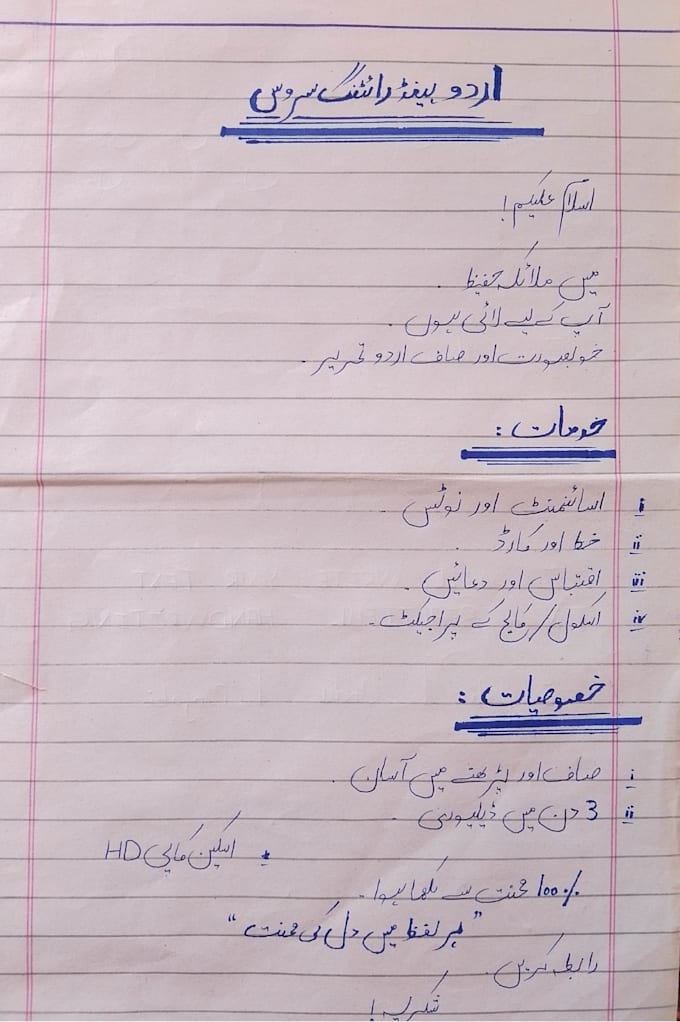 اردو ہینڈ رائٹنگ سروس
اسلام علیکم!
میں ملائکہ حفیظ.
آپ کے لیے لائی ہوں.
خوبصورت اور صاف اردو تحریر.
خدمات:
i اسائنمنٹ اور نوٹس.
ii خط اور کارڈ.
iii اقتباس اور دعائیں.
iv اسکول/کالج کے پراجیکٹ.
خصوصیات:
i صاف اور پڑھنے میں آسان.
ii 3 دن میں ڈیلیوری.
* اسکین کاپی HD
100% محنت سے لکھا ہوا.
"ہر لفظ میں دل کی محنت"
رابطہ کریں.
شکریہ!